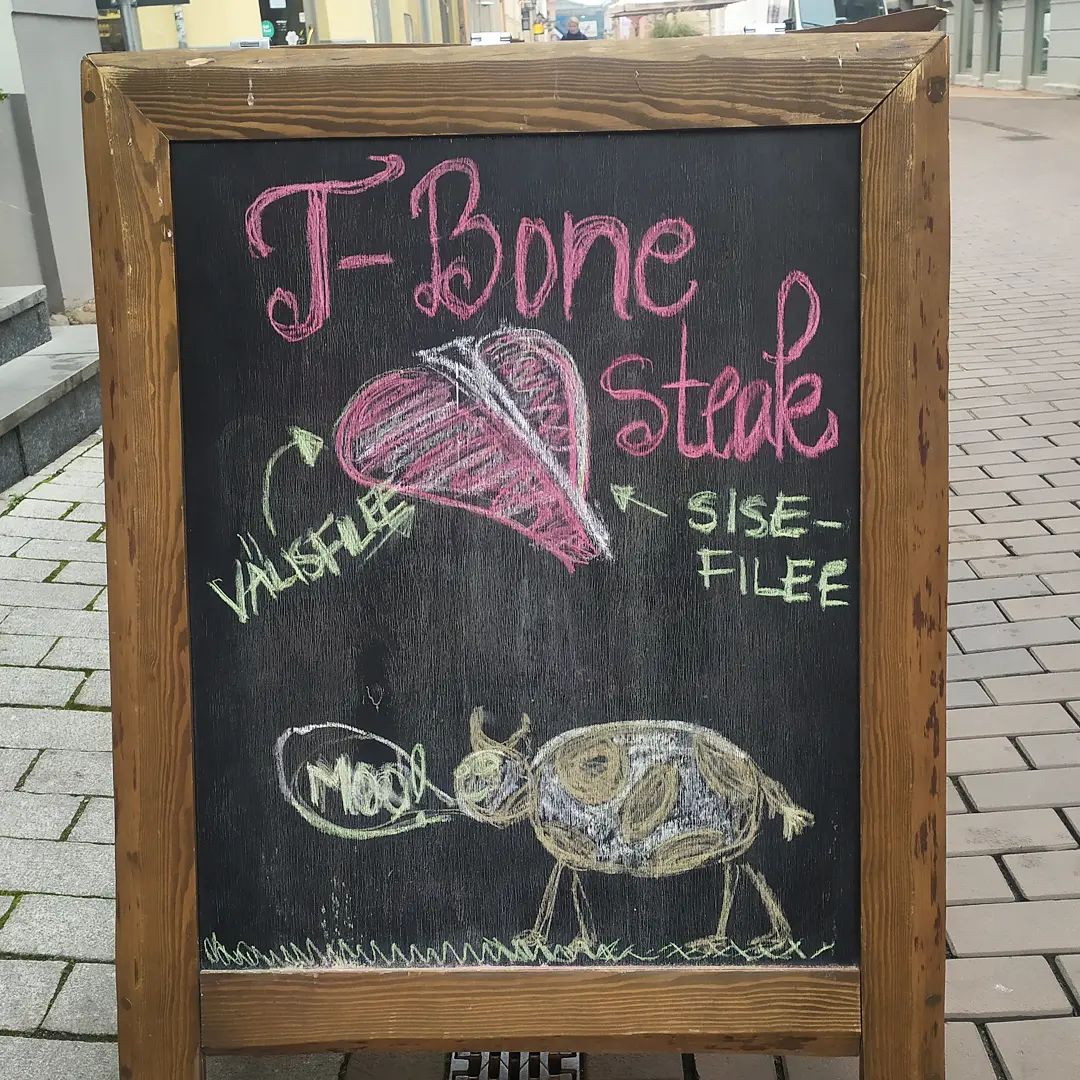 T-Bone
Steak
VÄLISFILEE
SISE-
FILEE
Moo!